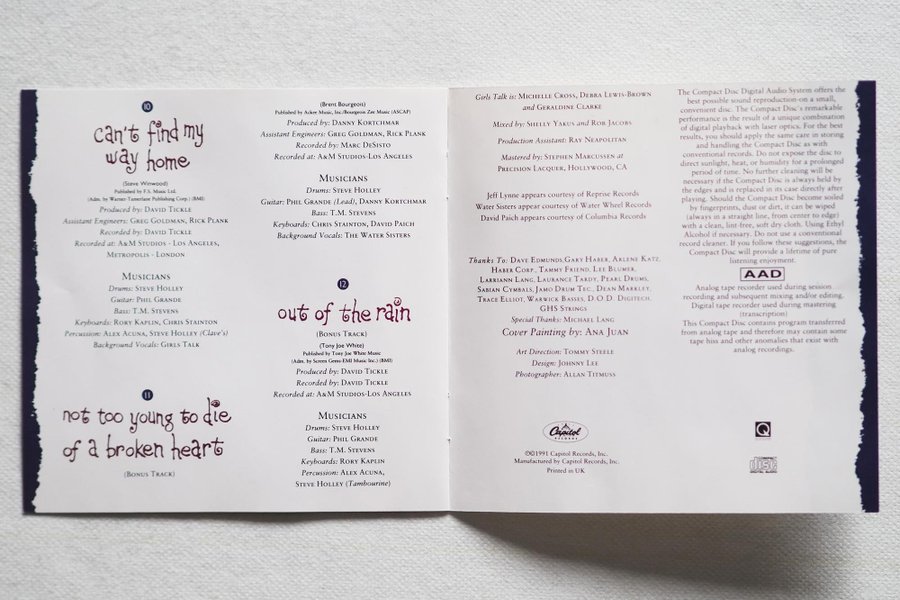 10
can't find my
way home
(Steve Winwood)
Published by F.S. Music Ltd.
(Adm. by Warner-Tamerlane Publishing Corp.) (BMI)
Produced by: David Tickle
Assistant Engineers: Greg Goldman, Rick Plank
Recorded by: David Tickle
Recorded at: A&M Studios - Los Angeles,
Metropolis - London
Musicians
Drums: Steve Holley
Guitar: Phil Grande
Bass: T.M. Stevens
Keyboards: Rory Kaplin, Chris Stainton
Percussion: Alex Acuna, Steve Holley (Clave's)
Background Vocals: Girls Talk
11
not too young to die
of a broken heart
(Bonus Track)
(Brent Bourgeois)
Published by Askey Music, Inc./Bourgeois Zee Music (ASCAP)
Produced by: Danny Kortchmar
Assistant Engineers: Greg Goldman, Rick Plank
Recorded by: Marc DeSisto
Recorded at: A&M Studios-Los Angeles
Musicians
Drums: Steve Holley
Guitar: Phil Grande (Lead), Danny Kortchmar
Bass: T.M. Stevens
Keyboards: Chris Stainton, David Paich
Background Vocals: The Water Sisters
12
out of the rain
(Bonus Track)
(Tony Joe White)
Published by Tony Joe White Music
(Adm. by Screen Gems-EMI Music Inc.) (BMI)
Produced by: David Tickle
Recorded by: David Tickle
Recorded at: A&M Studios-Los Angeles
Musicians
Drums: Steve Holley
Guitar: Phil Grande
Bass: T.M. Stevens
Keyboards: Rory Kaplin
Percussion: Alex Acuna,
Steve Holley (Tambourine)
Girls Talk is: Michelle Cross, Debra Lewis-Brown
and Geraldine Clarke
Mixed by: Shelly Yakus and Rob Jacobs
Production Assistant: Ray Neapolitan
Mastered by: Stephen Marcussen at
Precision Lacquer, Hollywood, CA
Jeff Lynne appears courtesy of Reprise Records
Water Sisters appear courtesy of Water Wheel Records
David Paich appears courtesy of Columbia Records
Thanks To: Dave Edmunds,Gary Haber, Arlene Katz,
Haber Corp., Tammy Friend, Lee Blumer,
Larriann Lang, Laurance Tardy, Pearl Drums,
Sabian Cymbals, Jamo Drum Tec., Dean Markley,
Trace Elliot, Warwick Basses, D.O.D. Digitech,
GHS Strings
Special Thanks: Michael Lang
Cover Painting by: Ana Juan
Art Direction: Tommy Steele
Design: Johnny Lee
Photographer: Allan Titmuss
Capitol
RECORDS
℗©1991 Capitol Records, Inc.
Manufactured by Capitol Records, Inc.
Printed in UK
The Compact Disc Digital Audio System offers the
best possible sound reproduction on a small,
convenient disc. The Compact Disc's remarkable
performance is the result of a unique combination
of digital playback with laser optics. For the best
results, you should apply the same care in storing
and handling the Compact Disc as with
conventional records. Do not expose the disc to
direct sunlight, heat, or humidity for a prolonged
period of time. No further cleaning will be
necessary if the Compact Disc is always held by
the edges and is replaced in its case directly after
playing. Should the Compact Disc become soiled
by fingerprints, dust or dirt, it can be wiped
(always in a straight line, from center to edge)
with a clean, lint-free, soft dry cloth. Using Ethyl
Alcohol if necessary. Do not use a conventional
record cleaner. If you follow these suggestions, the
Compact Disc will provide a lifetime of pure
listening enjoyment.
AAD
Analog tape recorder used during session
recording and subsequent mixing and/or editing.
Digital tape recorder used during mastering
(transcription)
This Compact Disc contains program transferred
from analog tape and therefore may contain some
tape hiss and other anomalies that exist with
analog recordings.
Q
COMPACT
disc
DIGITAL AUDIO